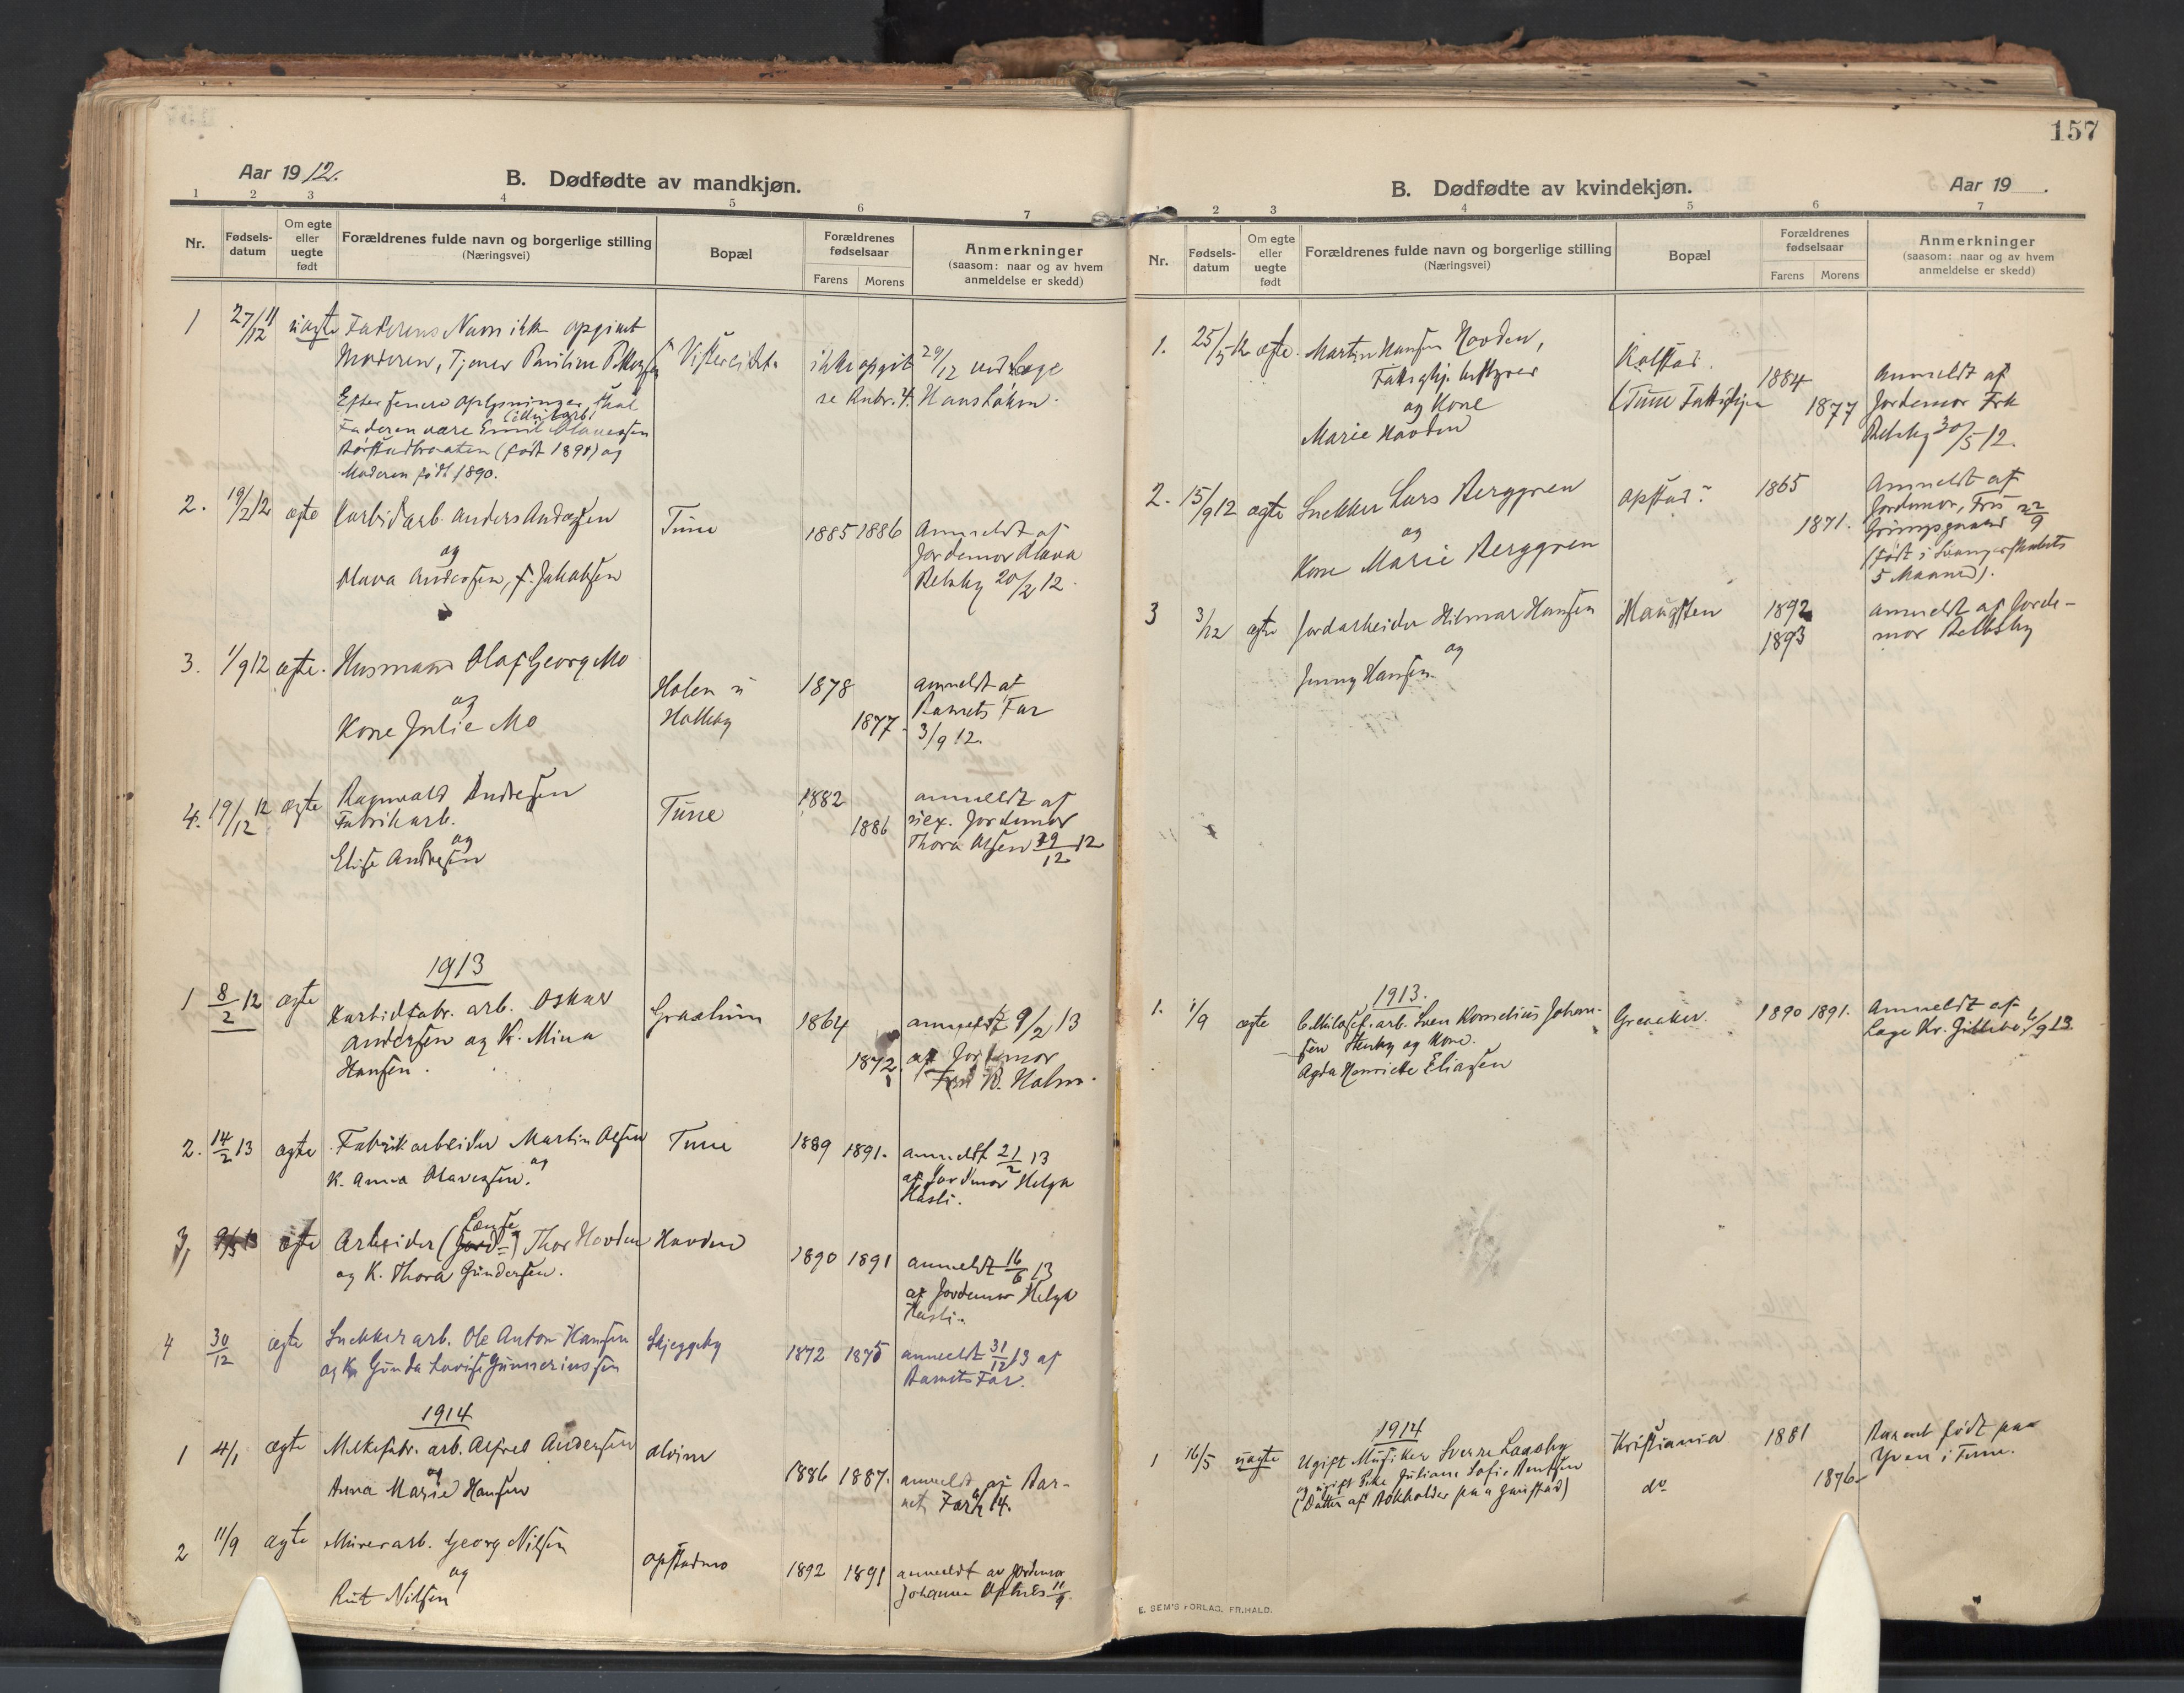 157
Aar 1912.
B. Dødfødte av mandkjøn.
1 2 3 4 5 6 7
Nr.
Fødsels-
datum
Om egte
eller
uegte
født
Forældrenes fulde navn og borgerlige stilling
(Næringsvei)
Bopæl
Forældrenes
fødselsaar
Farens Morens
Anmerkninger
(saasom: naar og av hvem
anmeldelse er skedd)
1 27/11 12 uægte Faderens Navn ikke opgivet
Moderen, Tjener
ikke opgivt 29/12 ved Læge
se Rubr. 4. Hans Holm.
Efter senere Oplysninger skal
Faderen være Emil Olavesen
(født 1891) og
Moderen født 1890.
2. 19/2 12 ægte Karbidarb. Anders Andersen Tune 1885 1886 Anmeldt af
og
Jordemor Olava
Olava Andersen, f. Jakobsen
Belsby 20/2 12.
3. 1/9 12 ægte. Husmand Olaf Georg Mo
Holen u 1878 anmeldt af
og
Holleby 1877. Barnets Far
Kone Julie Mo
3/9 12.
4. 19/12 12 ægte Ragnvald Andresen Tune 1882 anmeldt af
Fabrikarb. 1886 Jordemor
og
Thora Olsen 29/12 12
Elise Andresen
1913
1 8/2 12 ægte Karbidfabr. arb. Oskar Graalum 1864 anmeldt 9/2 13
Andersen og K. Mina 1872. af Jordemor
Hansen. K. Holm.
2. 14/2 13 ægte Fabrikarbeider Martin Olsen Tune 1889 1891. anmeldt 21/2 13
og
K. Anna Olavesen.
af Jordmor Helga
Hasli.
3, 9/5 13 ægte Arbeider (Lænse) Thor Hovden Hovden 1890 1891 anmeldt 16/6 13
og K. Thora Gundersen.
af Jordemor Helga
Hasli.
4 30/12 ægte Snekkerarb. Ole Anton Hansen Skjeggeby 1872 1875 anmeldt 31/12 13 af
og K Gunda Lovise Gunneriussen
Barnets Far.
1914
1 4/1 ægte Melkefabr. arb. Alfred Andersen Alvim 1886 1887. anmeldt af Bar-
og
Anna Marie Hansen
nets Far 14.
2 11/9 ægte Murerarb. Georg Nilsen Opstadmo 1892 1891 anmeldt av Jordemor
og
Johanne 11/9.
Rut Nilsen
B. Dødfødte av kvindekjøn.
Aar 19 .
2 3 4 5 6 7
Nr.
Fødsels-
datum
Om egte
eller
uegte
født
Forældrenes fulde navn og borgerlige stilling
(Næringsvei)
Bopæl
Forældrenes
fødselsaar
Farens Morens
Anmerkninger
(saasom: naar og av hvem
anmeldelse er skedd)
1. 25/5 12 ægte. Martin Hansen Hovden, Kalstad. 1884 Anmeldt af
Fattigh. bestyrer (Tune Fattighjem 1877 Jordemor Frk
og Kone
Belsby 30/5 12.
Marie Hovden
2. 15/9 12 ægte Snekker Lars Berggren Opstad 1865 Anmeldt af
og
1871. Jordemor, Fru
Kone Marie Berggren
Grimsgaard 22/9
(Født i Svangerskabets
5 Maaned).
3 3/12 ægte Jordarbeider Hilmar Hansen Haugsten 1892 anmeldt af Jorde-
og
1893 mor Belsby
Jenny Hansen
1913.
1. 1/9 ægte Cellulosef. arb. Sven Kornelius Johan- Greaaker. 1890 1891. Anmeldt af
sen Stenby og Kone.
Læge Kr. 4/9 13.
Agda Henriette Eliasen
1914
1 16/5 uægte Ugift Musiker Sverre Laasby Kristiania 1881 Barnet født paa
og ugift Pike Juliane Sofie Bentsen do 1876 Yven i Tune.
(Datter af Bokholder paa Gunstad)
E. SEM'S FORLAG. FR.HALD.